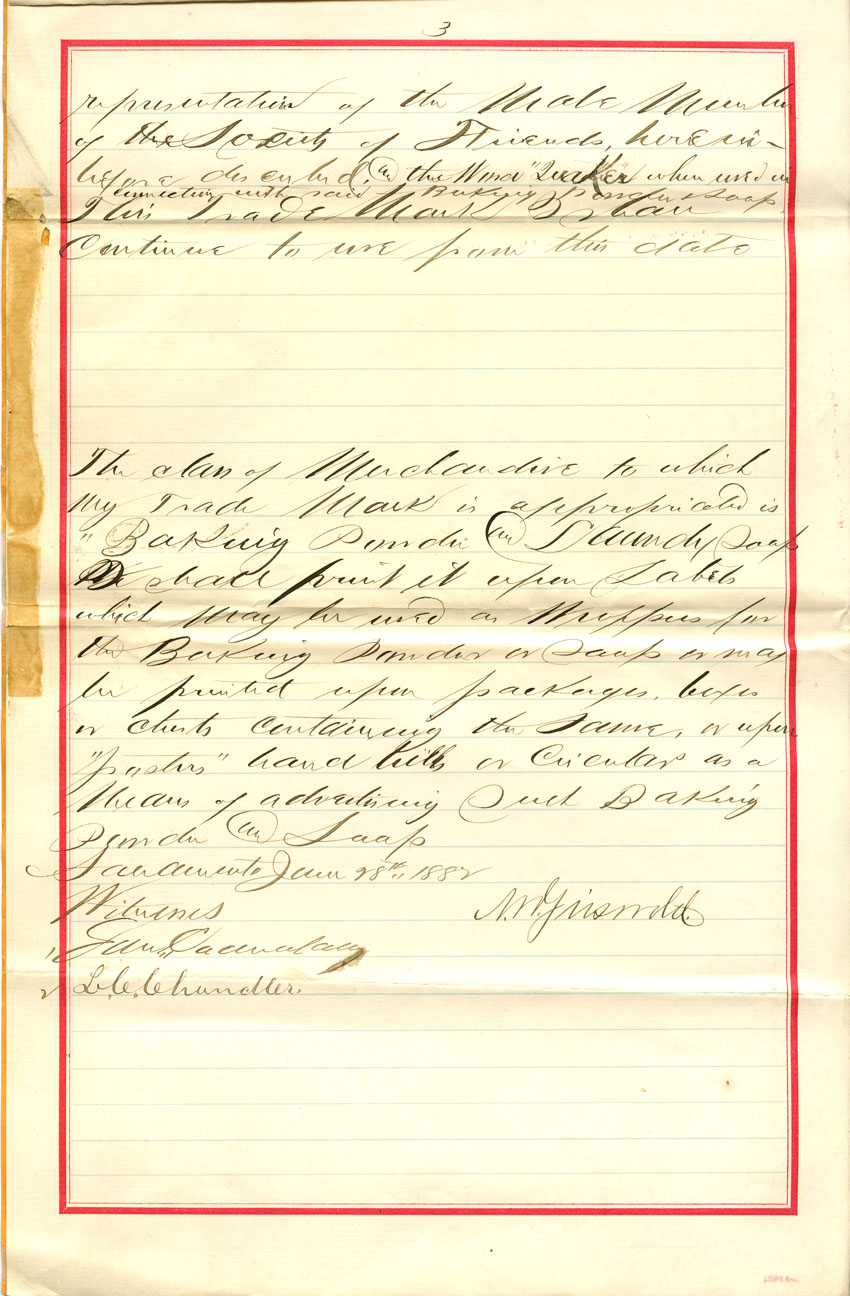 3
representation of the Male Member
of the Society of Friends, herein-
before described, and the Word "Quaker" when used in
connection with said Baking Powder & Soap
This Trade Mark I shall
Continue to use from this date
The class of Merchandise to which
My Trade Mark is appropriated is
"Baking Powder and Laundry Soap
I shall print it upon Labels
which May be used as Wrappers for
the Baking Powder or Soap or may
be printed upon packages, boxes
or chests containing the Same, or upon
"posters" hand bills or Circular as a
Means of advertising Such Baking
Powder and Soap
Sacramento June 28th, 1882
Witnesses
N. W. Griswold.
1
2 L. C. Chandler.